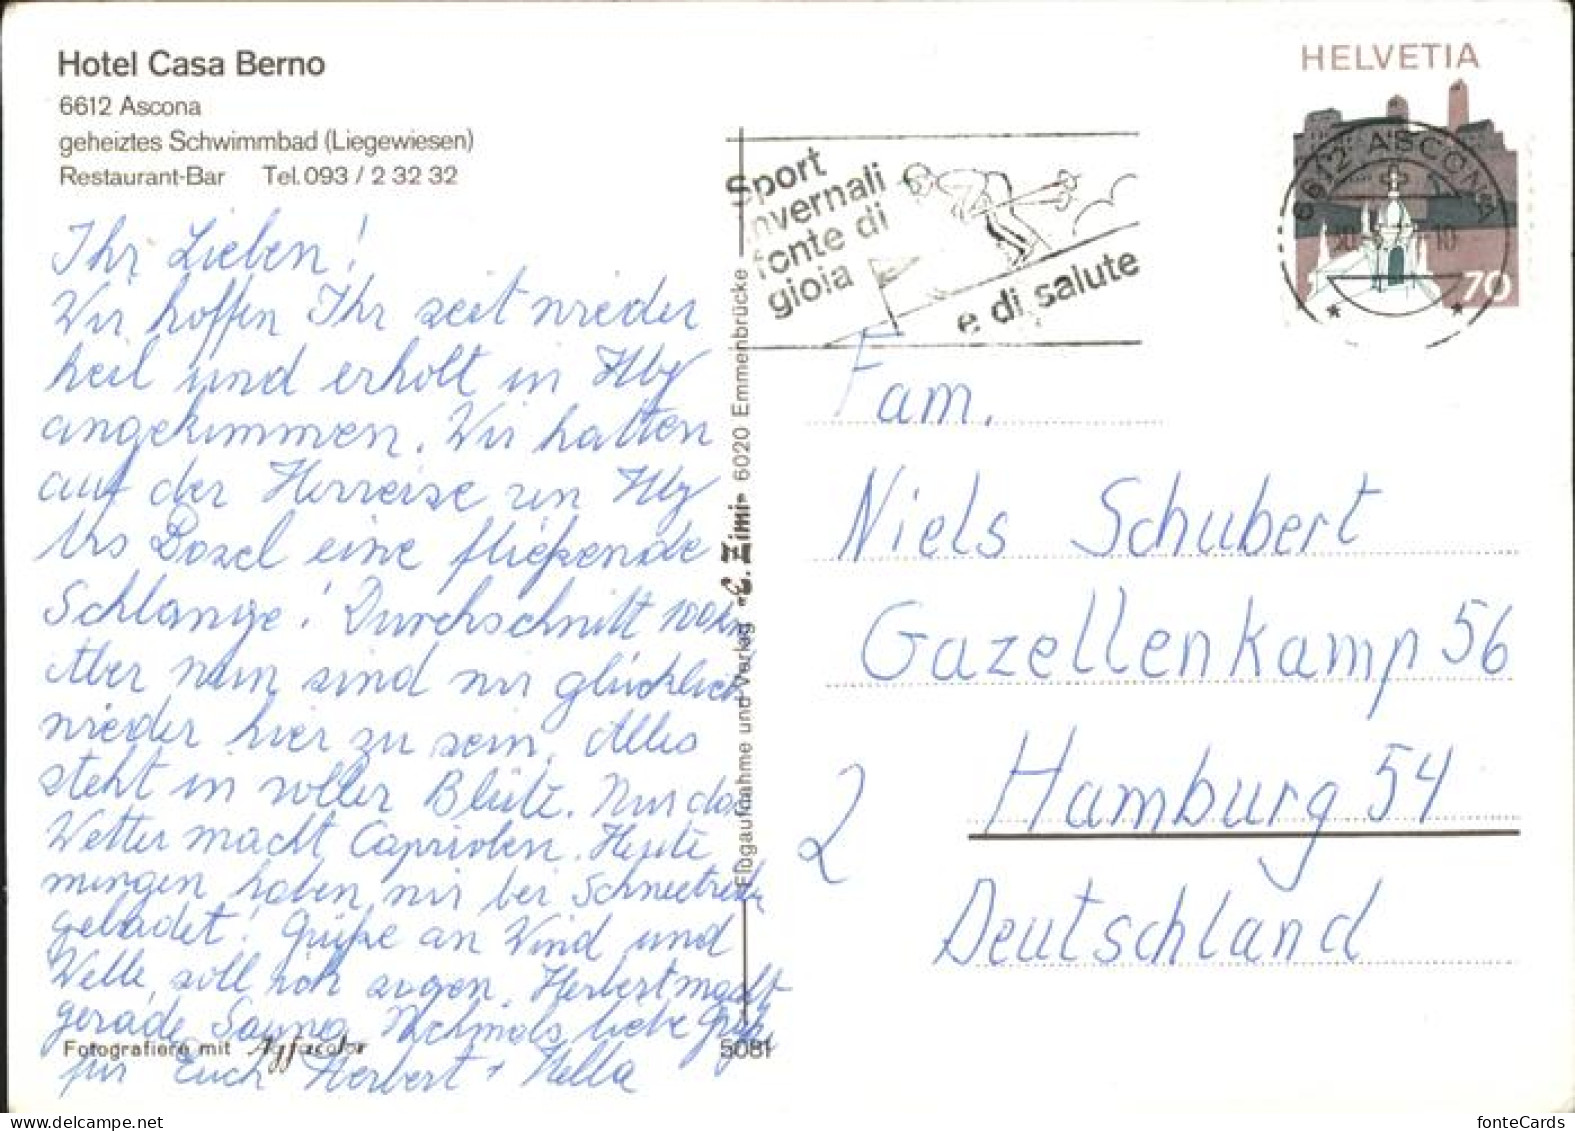 Hotel Casa Berno
6612 Ascona
geheiztes Schwimmbad (Liegewiesen)
Restaurant-Bar Tel. 093 / 2 32 32
Ihr Lieben!
Wir hoffen Ihr seit wieder
heil und erholt in Hbg
angekommen. Wir hatten
auf der Herreise von Hbg
bis Basel eine fließende
Schlange! Durchschnitt 100 km
Aber nun sind wir glücklich
wieder hier zu sein. Alles
steht in voller Blüte. Nur das
Wetter macht Capriolen. Heute
morgen haben wir bei Schneetreiben
gebadet! Grüße an Wind und
Welle, soll ich sagen. Herbert macht
gerade Sauna. Nochmals liebe Grüße
für Euch Herbert + Hella
Fotografiere mit Agfacolor
5081
Flugaufnahme und Verlag «E. Zimi» 6020 Emmenbrücke
Sport
invernali
fonte di
gioia
e di salute
HELVETIA
6612 ASCONA
70
Fam.
Niels Schubert
Gazellenkamp 56
2 Hamburg 54
Deutschland
fonteCards
PicClick